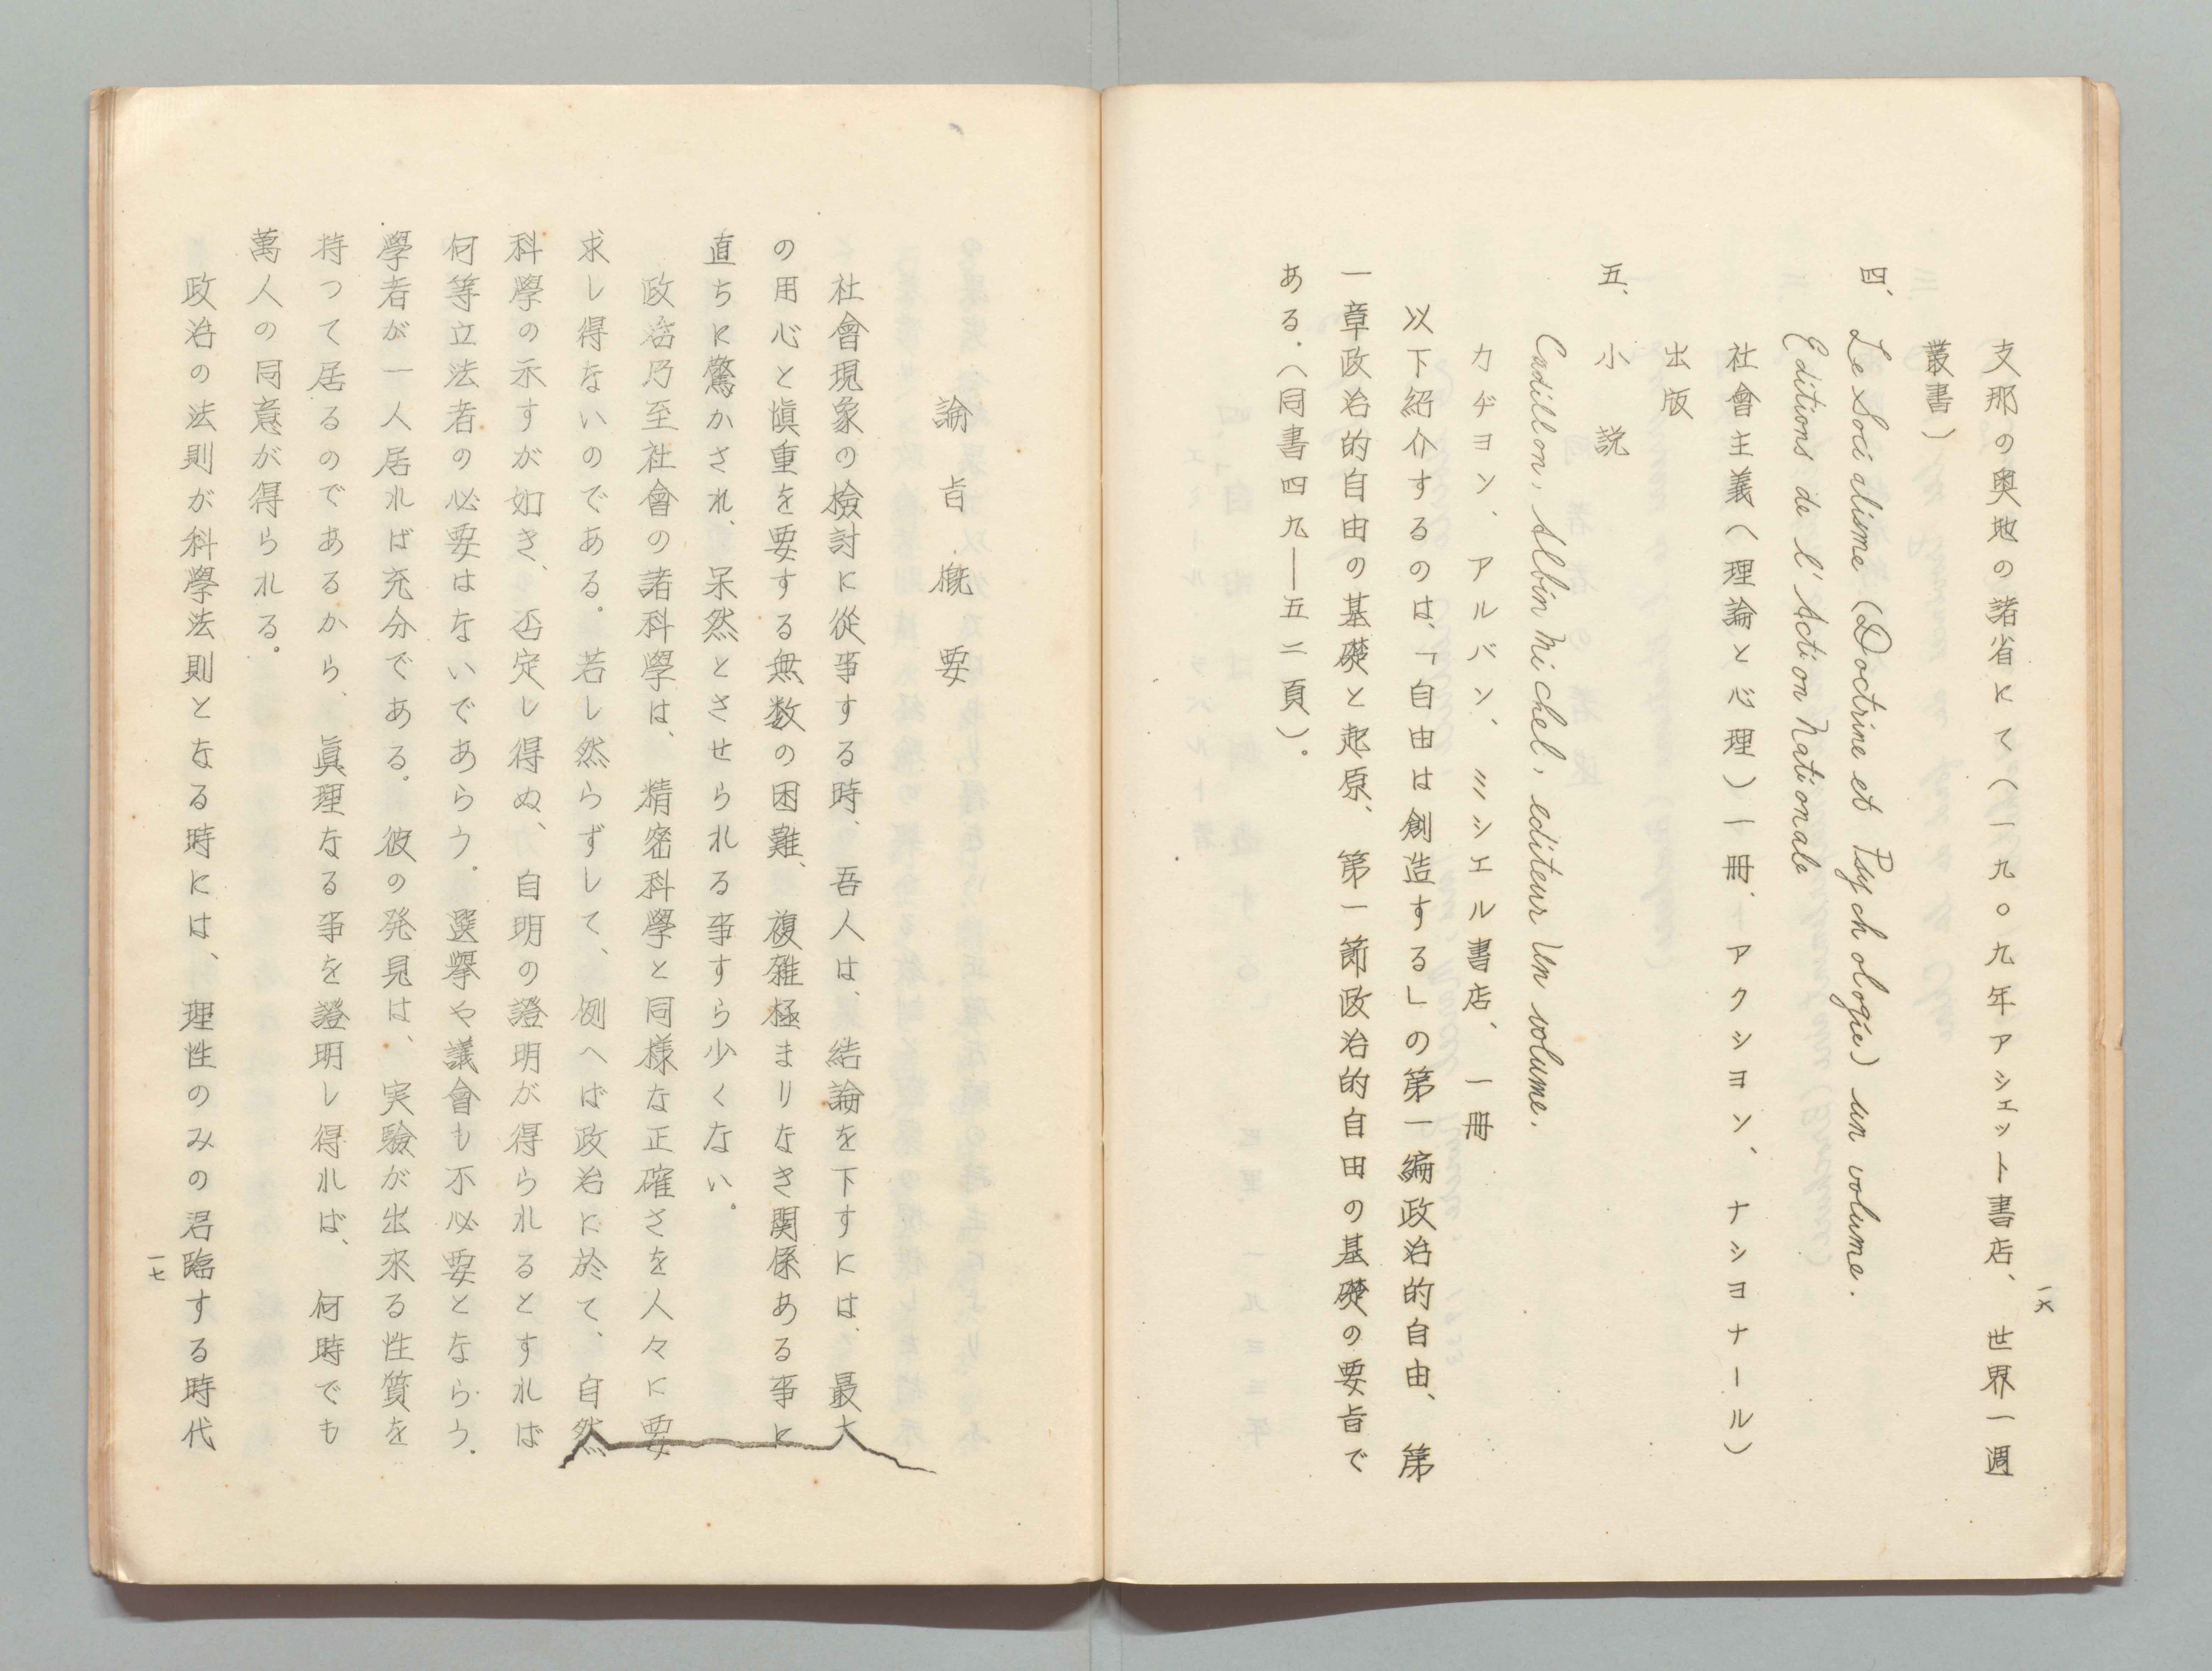 一六
支那の奥地の諸省にて（一九〇九年アシェット書店、世界一週
叢書）
四、Le Socialisme (Doctrine et Psychologie) un volume.
Editions de l'Action Nationale
社會主義（理論と心理）一冊、アクシヨン、ナシヨナール）
出版
五、小説
Cadillon, Albin Michel, editeur Un volume.
カヂヨン、アルバン、ミシエル書店、一冊
以下紹介するのは、「自由は創造する」の第一編政治的自由、第
一章政治的自由の基礎と起原、第一節政治的自由の基礎の要旨で
ある.（同書四九――五二頁）。
論旨概要
社會現象の檢討に從事する時、吾人は、結論を下すには、最大
の用心と愼重を要する無数の困難、複雑極まりなき関係ある事に
直ちに驚かされ、呆然とさせられる事すら少くない。
政治乃至社會の諸科學は、精密科學と同様な正確さを人々に要
求し得ないのである。若し然らずして、例へば政治に於て、自然
科學の示すが如き、否定し得ぬ、自明の證明が得られるとすれば
何等立法者の必要はないであらう。選擧や議會も不必要とならう.
學者が一人居れば充分である。彼の発見は、実驗が出來る性質を
持つて居るのであるから、眞理なる事を證明し得れば、何時でも
萬人の同意が得られる。
政治の法則が科學法則となる時には、理性のみの君臨する時代
一七